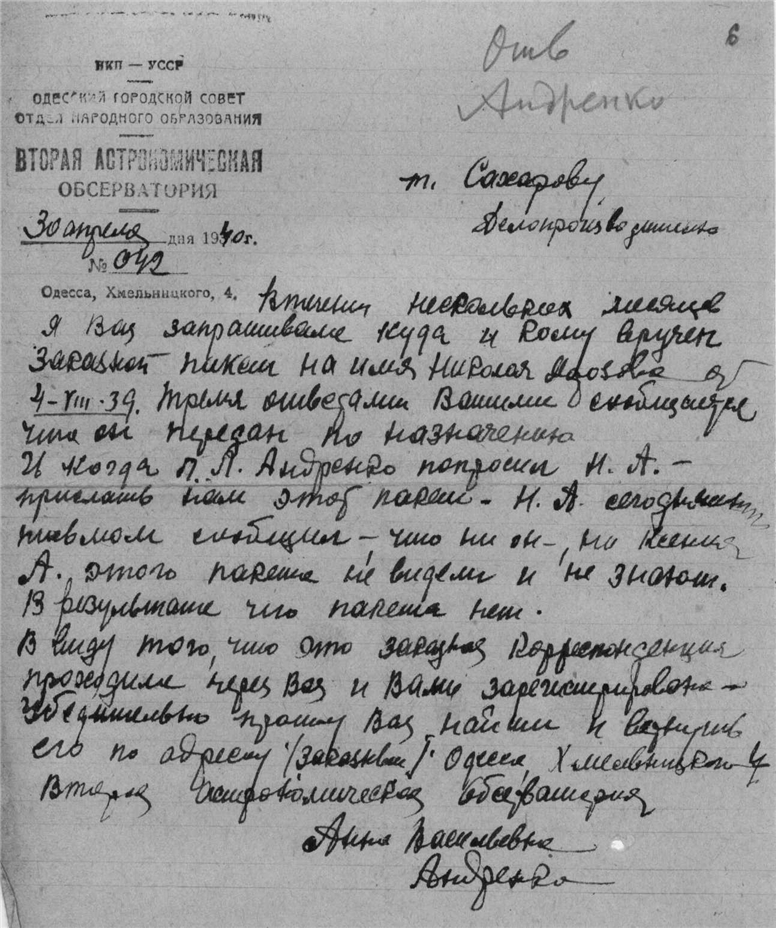 6
Отв
Андренко
НКП — УССР
ОДЕССКИЙ ГОРОДСКОЙ СОВЕТ
ОТДЕЛ НАРОДНОГО ОБРАЗОВАНИЯ
ВТОРАЯ АСТРОНОМИЧЕСКАЯ
ОБСЕРВАТОРИЯ
30 апреля дня 1940г.
№ 042
Одесса, Хмельницкого, 4.
т. Сахарову
Делопроизводителю
В течении нескольких месяцев
я Вас запрашивала куда и кому вручен
заказной пакет на имя Николая Морозова от
4-VIII-39. Тремя ответами Вашими сообщается
что он передан по назначению
И когда Л. Л. Андренко попросил Н. А. —
прислать нам этот пакет — Н. А. сегодняшним
письмом сообщил — что ни он —, ни Ксения
А. этого пакета не видели и не знают.
В результате чего пакета нет.
В виду того, что это заказная корреспонденция
проходила через Вас и Вами зарегистрирована —
убедительно прошу Вас найти и вернуть
его по адресу /заказным/ Одесса, Хмельницкого 4
Вторая Астрономическая обсерватория
Анна Васильевна
Андренко